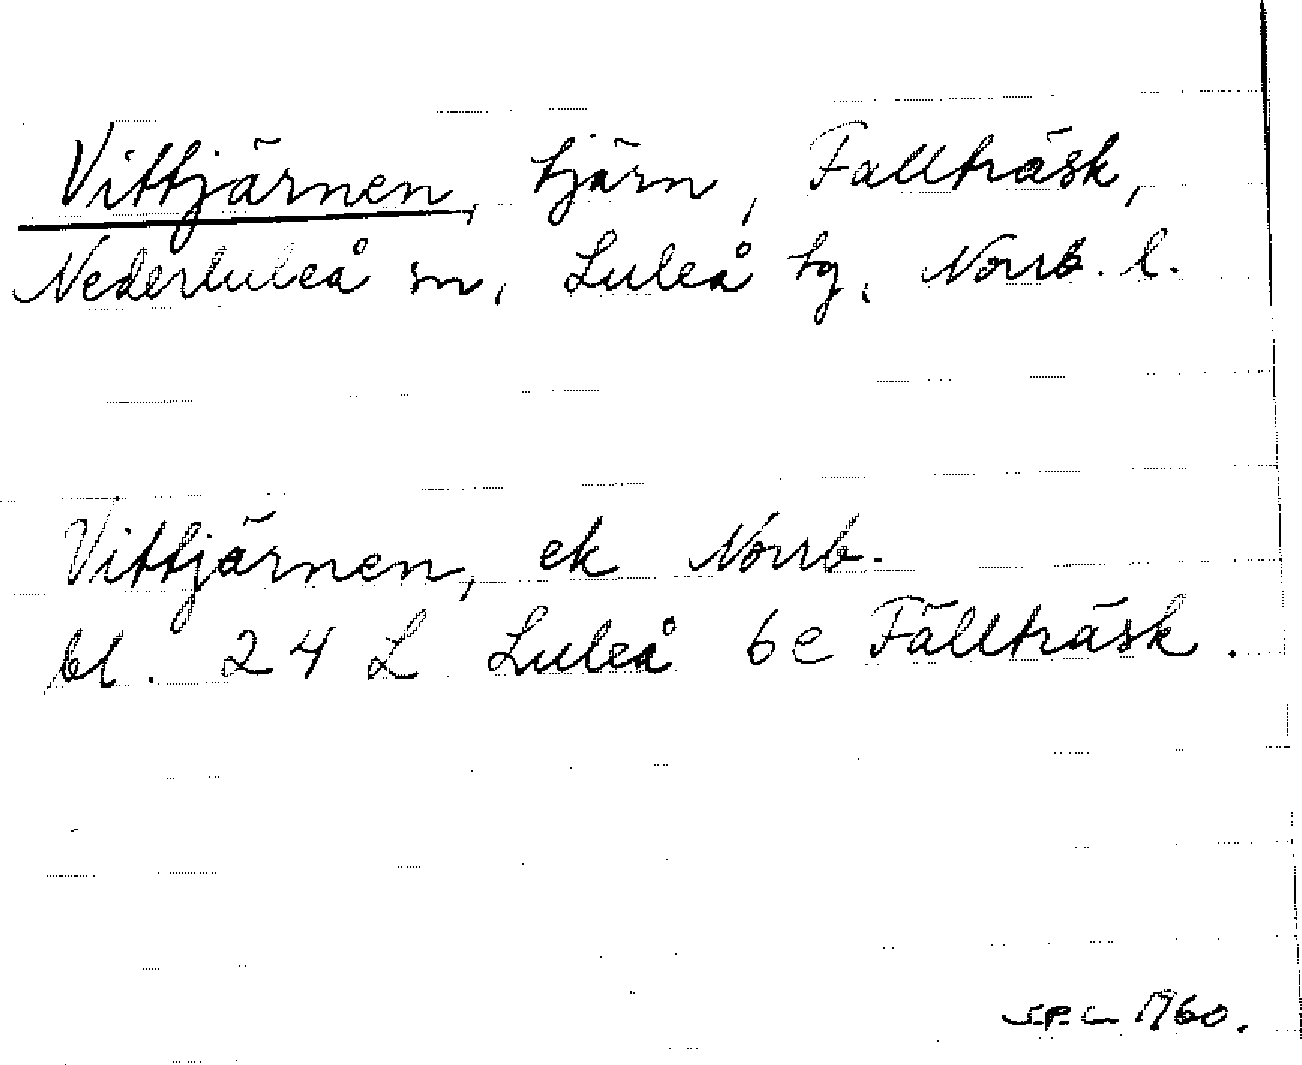 Vittjärnen, tjärn, Fällträsk,
Nederluleå sn, Luleå tg, Norrb. l.
Vittjärnen, ek Norrb.
bl. 24 L Luleå 6e Fällträsk.
1960.